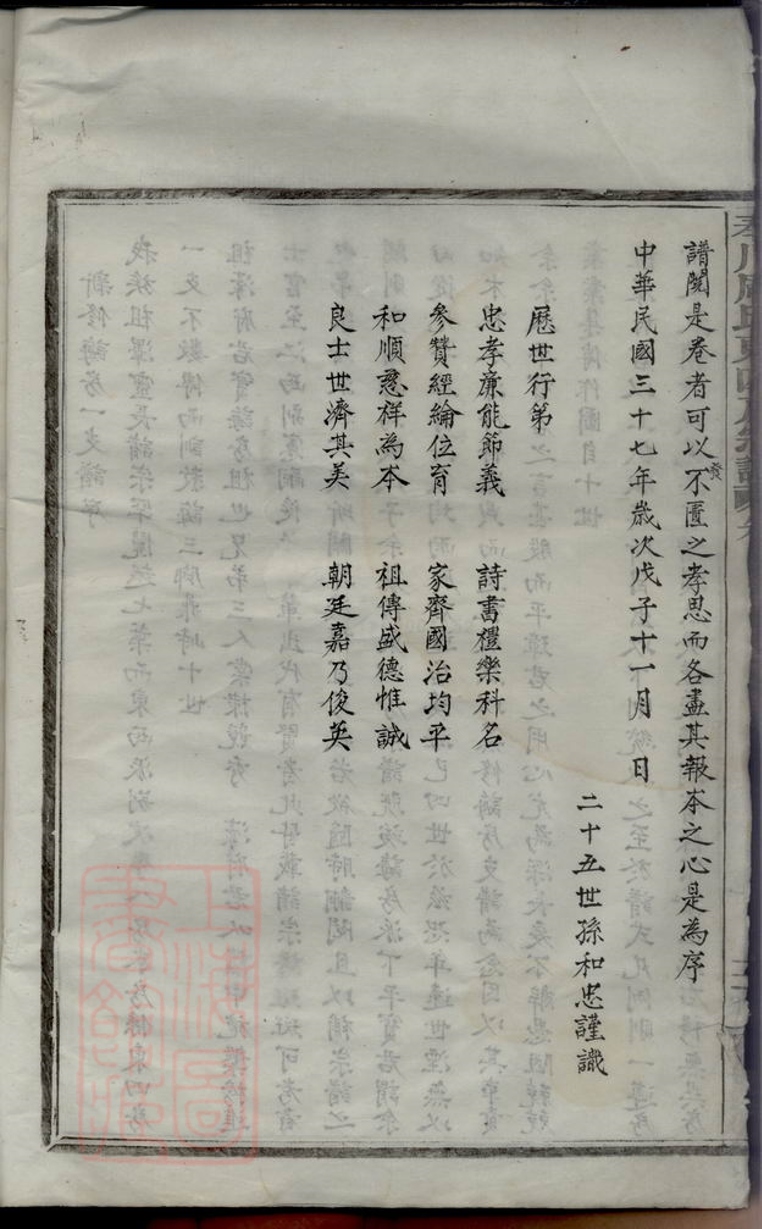 譜閱是卷者可以發不匱之孝思而各盡其報本之心是為序
中華民國三十七年歲次戊子十一月 日
二十五世孫和忠謹識
歷世行第
忠孝廉能節義 詩書禮樂科名
參贊經綸位育 家齊國治均平
和順慈祥為本 祖傳盛德惟誠
良士世濟其美 朝廷嘉乃俊英
上海圖書館藏